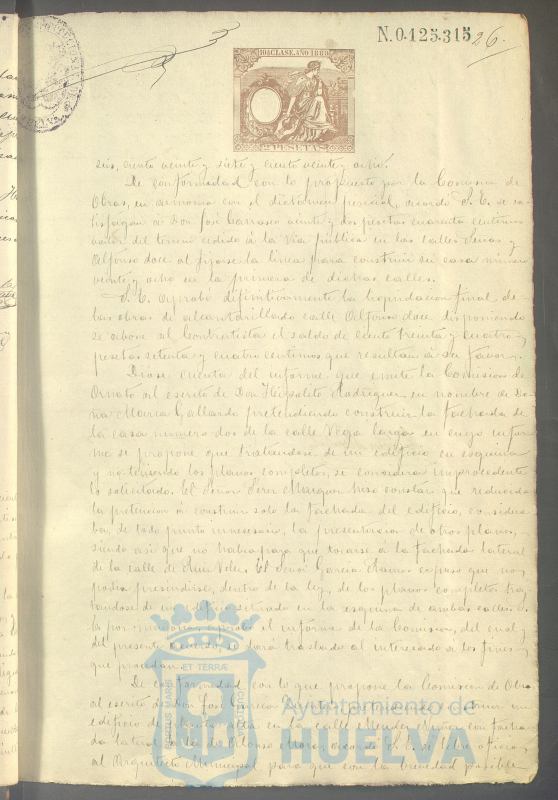 N. 0.125.315
26.
10ª CLASE. AÑO 1889
2 PESETAS
seis, ciento veinte y siete y ciento veinte y ocho.
De conformidad con lo propuesto por la Comision de
Obras, en armonia con el dictamen pericial, acordó S. E. se sa-
tisfagan a Don José Carrasco veinte y dos pesetas cuarenta centimos
valor del terreno cedido á la via publica en las calles Senas y
Alfonso doce al fijarse la linea para construir su casa numero
veinte y ocho en la primera de dichas calles.
S. E. aprobó difinitivamente la liquidacion final de
las obras de alcantarillado calle Alfonso doce disponiendo
se abone al Contratista el saldo de ciento treinta y cuatro
pesetas setenta y cuatro centimos que resultan á su favor.
Dióse cuenta del informe que emite la Comision de
Ornato al escrito de Don Hipolito Rodriguez en nombre de Do-
ña Maria Gallardo pretendiendo construir la fachada de
la casa numero dos de la calle Vega larga en cuyo infor-
me se propone que tratandose de un edificio en esquina
y no teniendo los planos completos, se considera improcedente
lo solicitado. El Señor Perez Marquez hizo constar que reducida
la pretencion á construir solo la fachada del edificio, considera-
ba, de todo punto innecesario, la presentacion de otros planos,
siendo asi que no habia para que tocarse á la fachada lateral
de la calle de Ruiz Velez. El Señor Garcia Ramos expuso que no
podia presindirse, dentro de la ley, de los planos completos tra-
tandose de un edificio situado en la esquina de ambas calles.
por mayoria aprobó el informe de la Comision, del cual y
del presente acuerdo, se dará traslado al interesado a los fines
que procedan.
De conformidad con lo que propone la Comision de Obras
al escrito de Don José Garcia
edificio de planta alta en la calle Mendez Nuñez con facha-
da lateral á la de Alonso Mora, acordó S. E. se libre oficio
al Arquitecto Municipal para que con la brevedad posible
PORTUS MARIS ET TERRÆ CUSTODIA
Ayuntamiento de
HUELVA